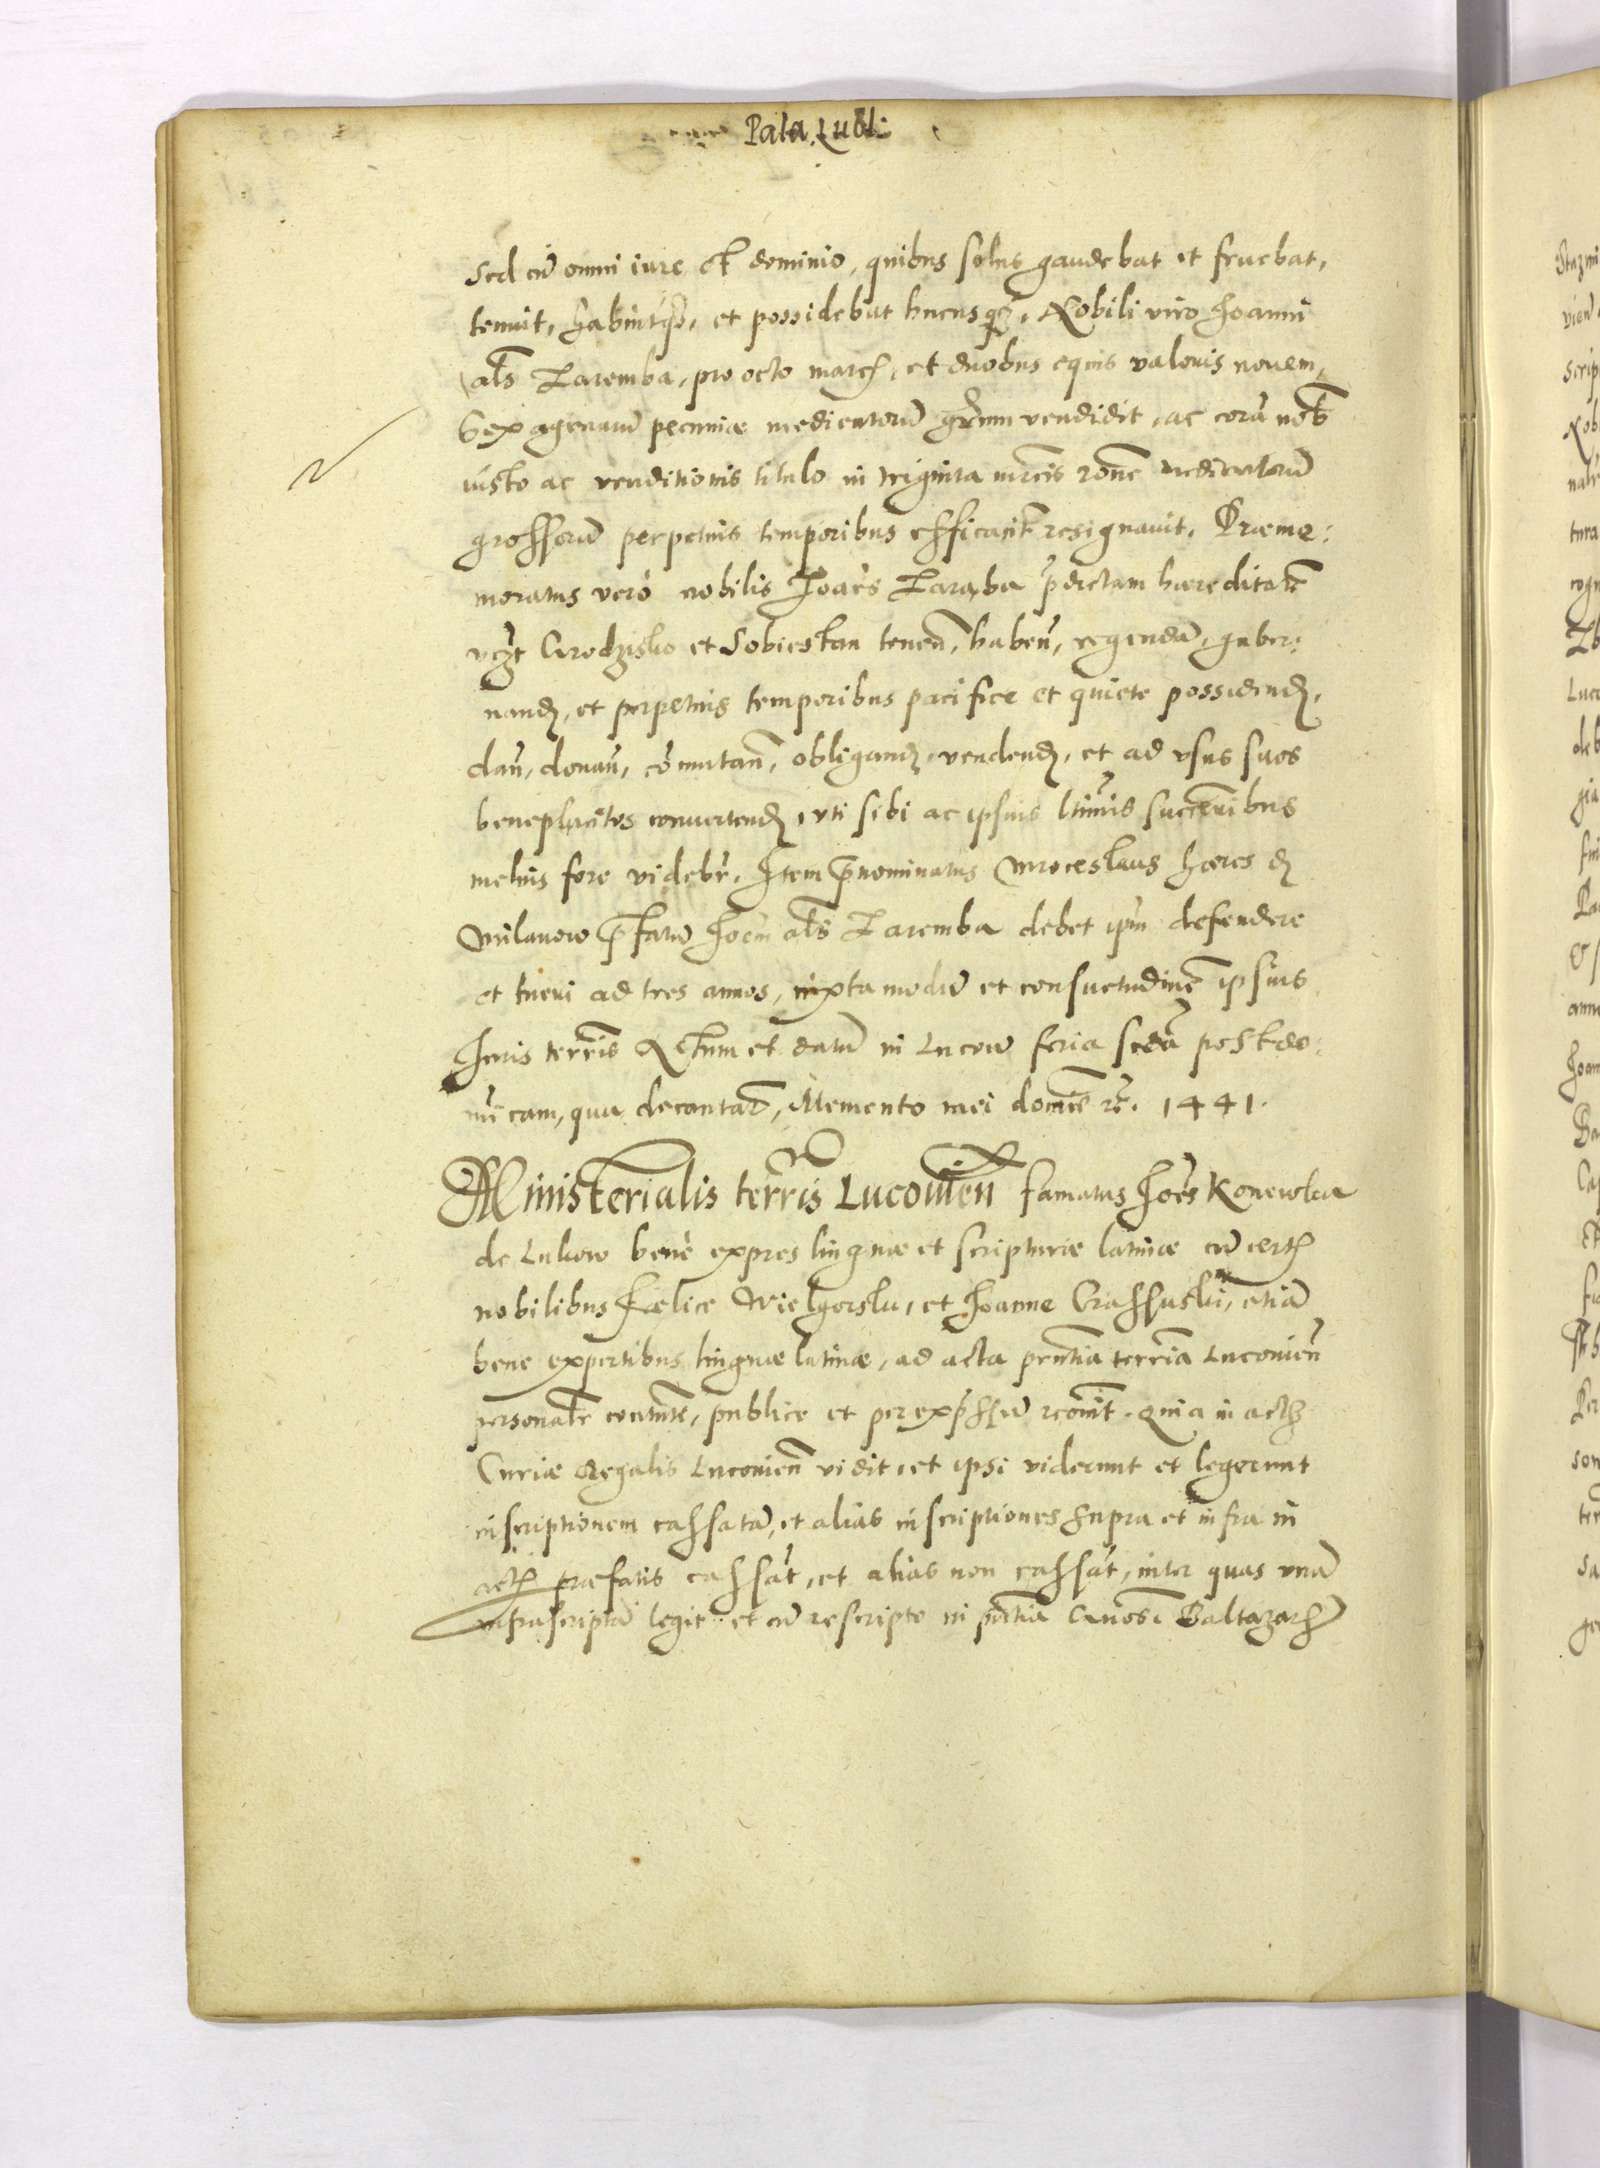 Pala. Lubl:
Sed cū omni iure et dominio, quibus solus gaudebat et fruebat,
tenuit, habuitq̄, et possidebat hucusq̄, Nobili viro Joanni
als Zaremba, pro octo marcis, et duobus equis valoris novem,
Sexagenarū pecuniæ medientorū grūm vendidit, ac corā nob
iusto ac venditionis titulo in triginta mrcis rōne medientorū
grossorū perpetuis temporibus efficacit resignavit. Præme:
moratus verò nobilis Joañs Zarāba p̄dictam hæreditatē
vczt Grodzisko et Sobieska tenen̄, haben̄, regendā, guber:
nand, et perpetuis temporibus pacifice et quiete possidend,
dan̄, donan̄, cōmutan̄, obligand, vendend, et ad vsus suos
beneplacitos convertend, vti sibi ac ipsius ltimis succeribus
melius fore videbr̄. Item p̄nominatus Mroceslaus hæres de
Milanow p̄fatū Joēm als Zaremba debet ip̄m defendere
et tueri ad tres annos, iuxta modū et consuetudinē ipsius
Juris terris Actum et datū in Lucow feria scdā post do:
mīcam, qua decantatr, Memento mei domīe etc. 1441.
Ministerialis terr̄ris Lucovien̄ famatus Joēs Konewka
de Lukow benè expers linguæ et scripturæ latinæ cū certis
nobilibus Fælice Wielgorsku, et Joanne Crassuski, etiā
bene expertibus linguæ latinæ, ad acta prn̄tia terr̄ia Luconien̄
personalr̄ , publice et per exp̄ssū recōnit. Quia in actis
Curiæ Regalis Luconien̄ vidit, et ipsi viderunt et legerunt
inscriptionem cassatā, et alias inscriptiones supra et infra in
actis præfatis cassāt, et alias non cassāt, inter quas vnā
infrascriptā legit et cū rescripto in pn̄tia Gnosi Baltazaris